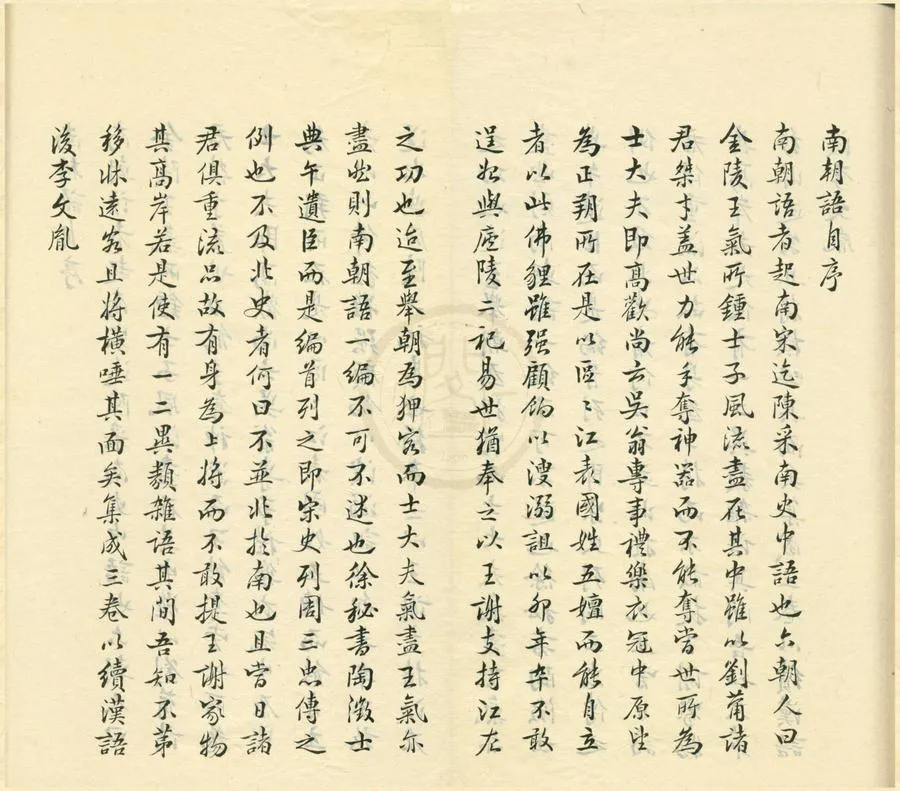 南朝語自序
南朝語者起南宋迄陳采南史中語也六朝人曰
金陵王氣所鍾士子風流盡在其中雖以劉蕭諸
君桀才蓋世力能手奪神器而不能奪當世所為
士大夫即高歡尚云吳翁專事禮樂衣冠中原望
為正朔所在是以區〻江表國姓五嬗而能自立
者以此佛貍雖強顧餉以溲溺詛以卯年卒不敢
逞如與庭陵二祀易世猶奉之以王謝支持江左
之功也迨至舉朝為狎客而士大夫氣盡王氣亦
盡然則南朝語一編不可不述也徐秘書陶徵士
典午遺臣而是編首列之即宋史列周三忠傳之
例也不及北史者何曰不並北於南也且當日諸
君俱重流品故有身為上將而不敢提王謝家物
其高岸若是使有一二異類雜語其間吾知不第
移牀遠客且將橫唾其面矣集成三卷以續漢語
後李文胤